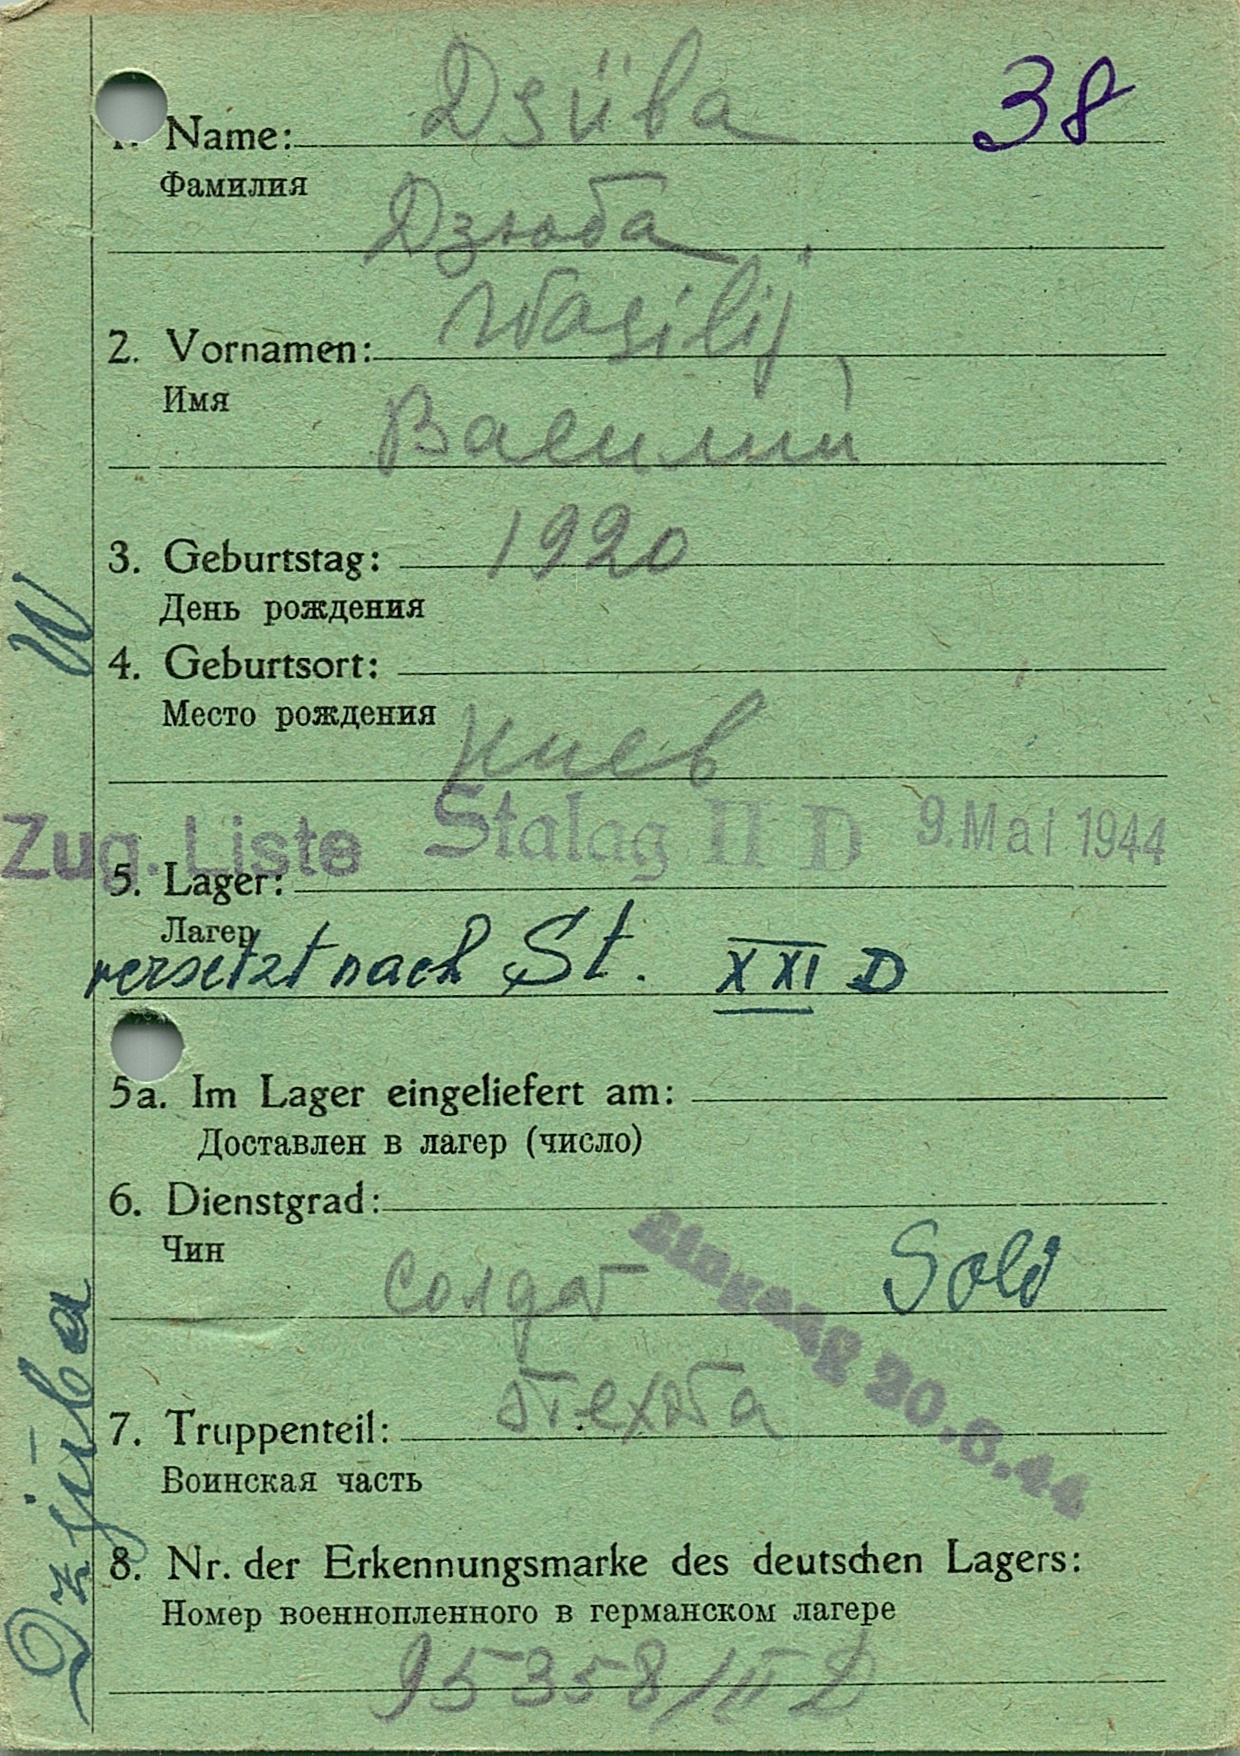 Dsüba 38
Name:
Фамилия
Дзюба
Wasilij
2. Vornamen:
Имя
Василий
3. Geburtstag: 1920
День рождения
W
4. Geburtsort:
Место рождения
Киев
Zug. Liste Stalag II D 9. Mai 1944
5. Lager:
Лагер
versetzt nach St. XXI D
5a. Im Lager eingeliefert am:
Доставлен в лагер (число)
6. Dienstgrad:
Чин
солдат Sold
Eingang 30.6.44
7. Truppenteil: пехота
Воинская часть
8. Nr. der Erkennungsmarke des deutschen Lagers:
Номер военнопленного в германском лагере
95358/II D
Dzjuba